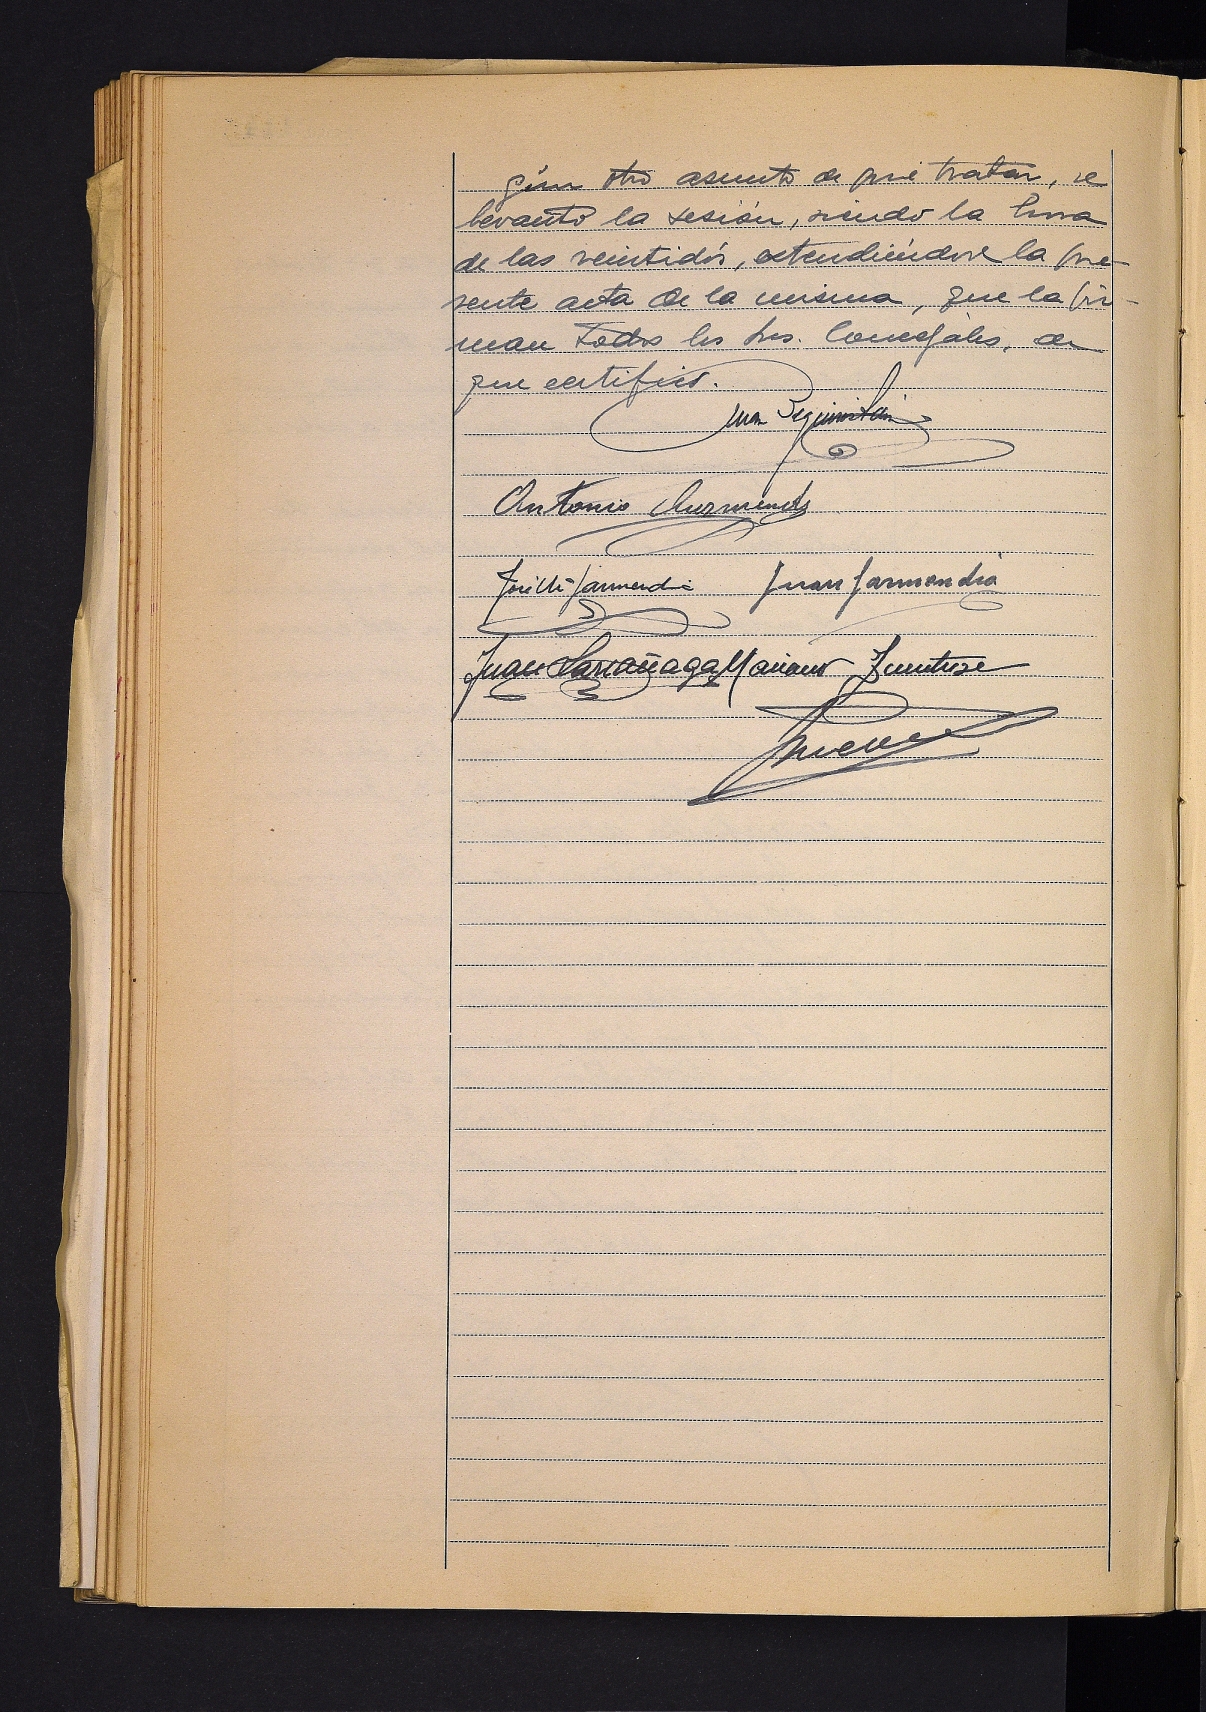 gún otro asunto de que tratar, se
levantó la sesión, siendo la hora
de las veintidós, extendiéndose la pre-
sente acta de la misma, que la fir-
man todos los Srs. Concejales, de
que certifico.
Juan Beguiristain
Antonio
José Mª Garmendia Juan Garmendia
Juan Larrañaga Mariano